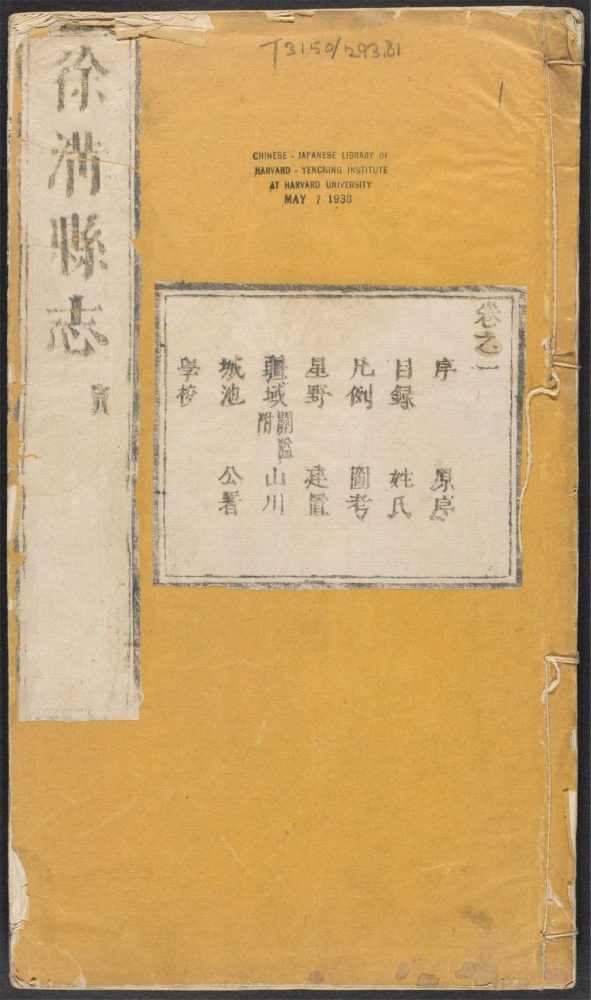 T3150/293.81
1
CHINESE - JAPANESE LIBRARY OF
HARVARD - YENCHING INSTITUTE
AT HARVARD UNIVERSITY
MAY 7 1938
徐溝縣志
卷之一
序 原序
目録 姓氏
凡例 圖考
星野 建置
疆域 關隘附 山川
城池 公署
學校